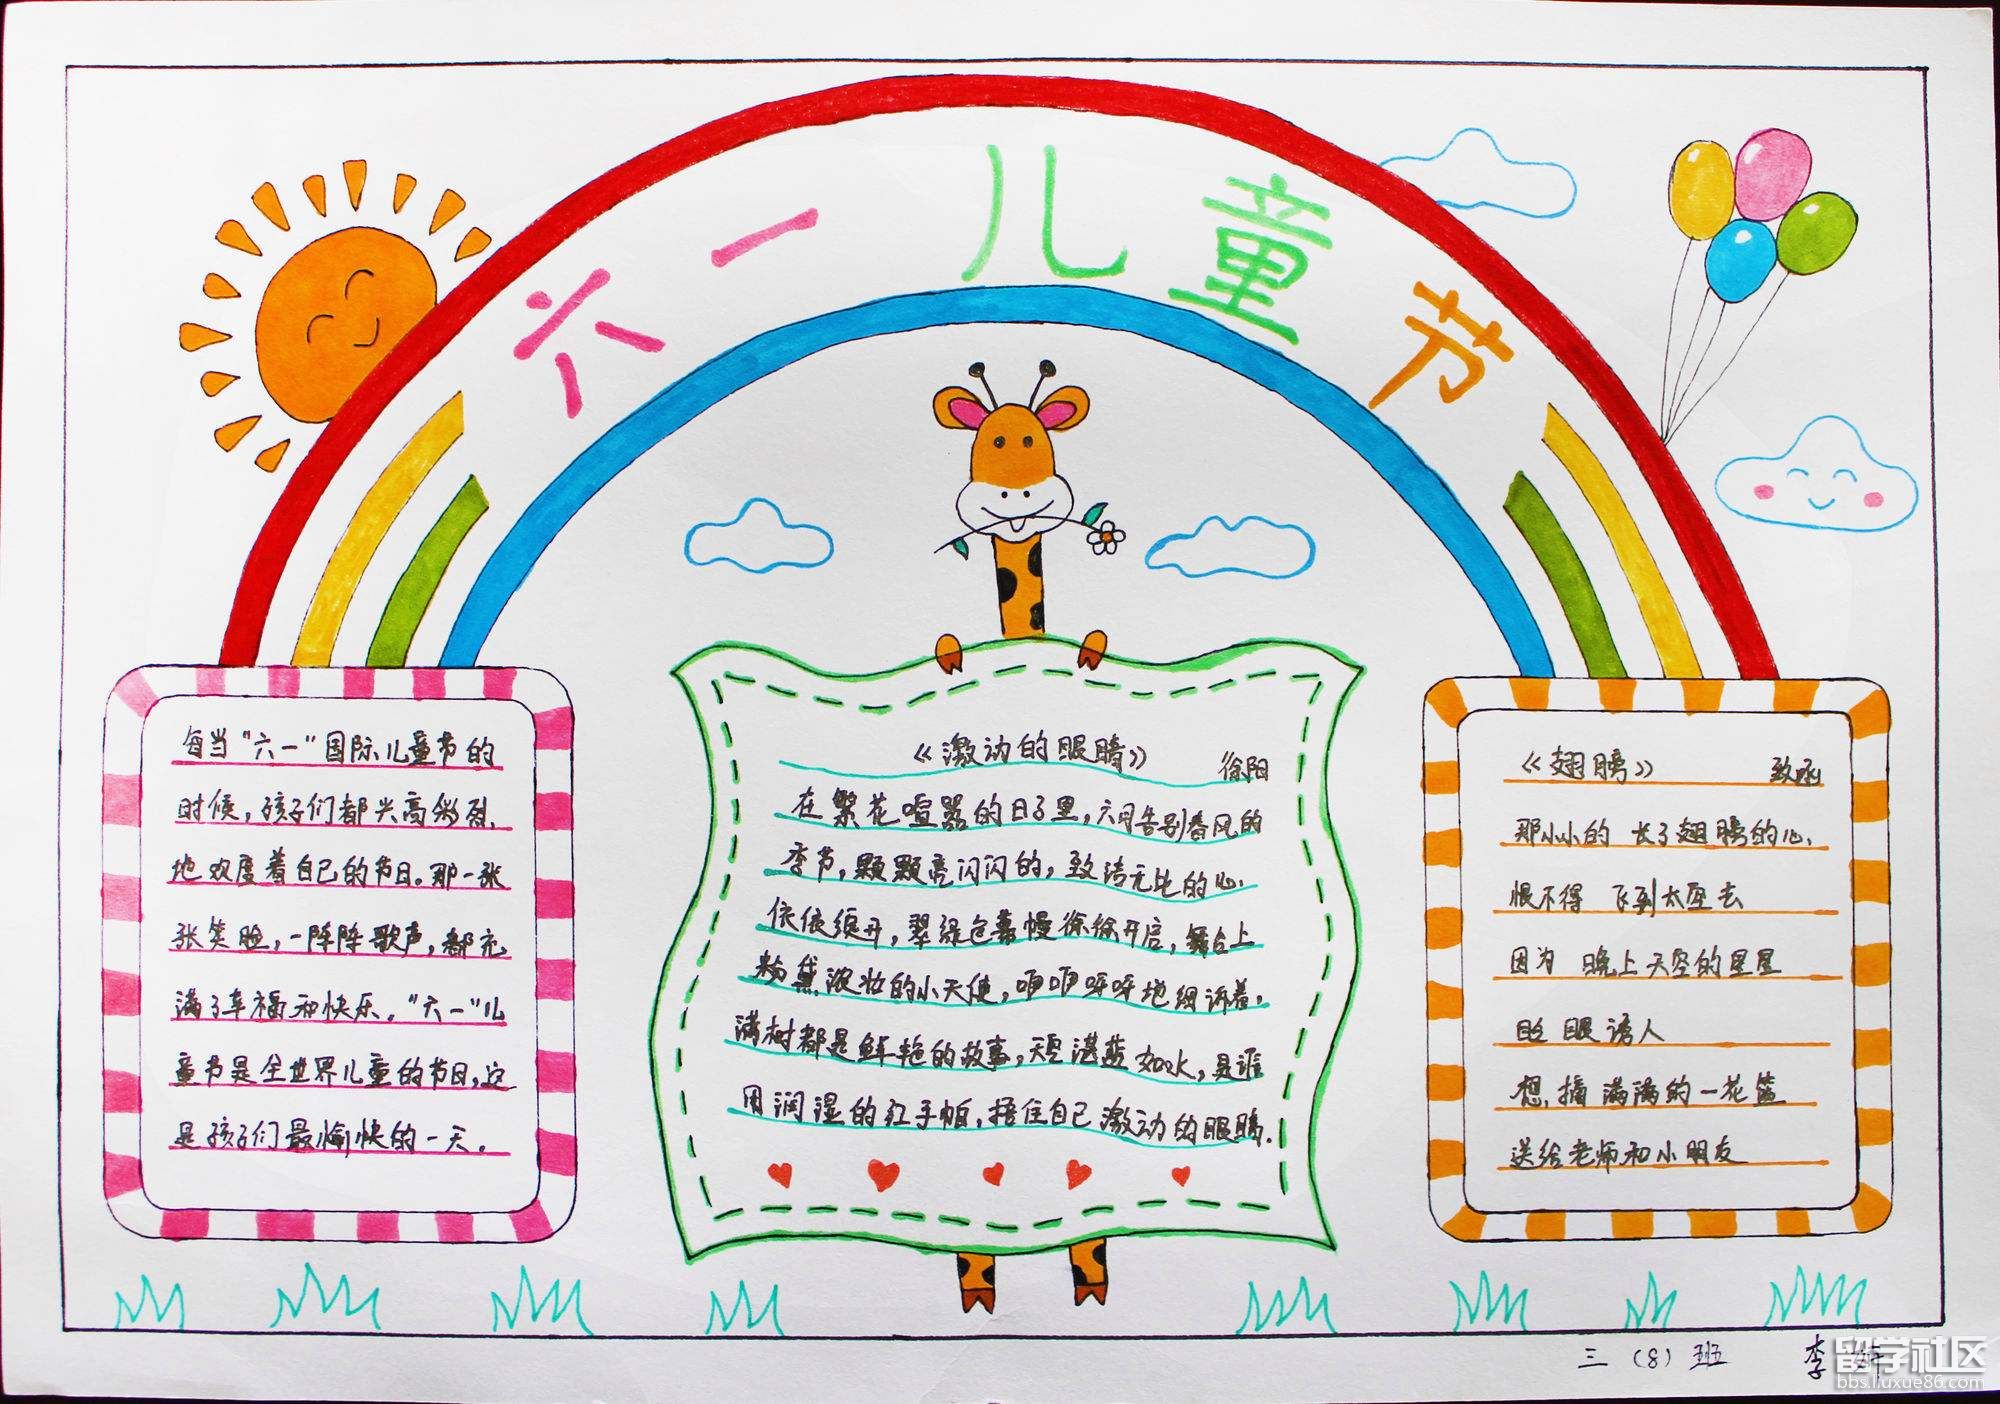 六一儿童节
每当“六一”国际儿童节的
时候，孩子们都兴高彩烈
地欢度着自己的节日。那一张
张笑脸，一阵阵歌声，都充
满了幸福和快乐。“六一”儿
童节是全世界儿童的节日，这
是孩子们最愉快的一天。
《激动的眼睛》 徐阳
在繁花喧嚣的日子里，六月告别春风的
季节，颗颗亮闪闪的，致洁无比的心，
依依绽开，翠绿色幕幔徐徐开启，舞台上
粉黛浓妆的小天使，咿咿呀呀地细诉着，
满树都是鲜艳的故事，天空湛蓝如水，是谁
用润湿的红手帕，捂住自己激动的眼睛。
《翅膀》 致函
那小小的 长了翅膀的心
恨不得 飞到太空去
因为 晚上天空的星星
眼诱人
想，摘满满的一花篮
送给老师和小朋友
三（8）班 李
留学社区
bbs.liuxue86.com